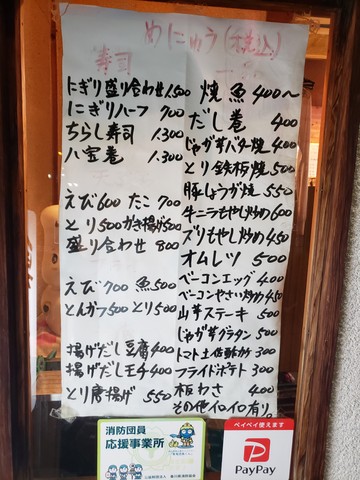 めにゅう(税込)
寿司
にぎり盛り合わせ1.500
にぎりハーフ 700
ちらし寿司 1.300
八宝巻 1.300
えび600 たこ 700
とり500 かき揚げ500
盛り合わせ 800
えび700 魚500
とんかつ500 とり500
揚げだし豆腐400
揚げだし玉子400
とり唐揚げ 550
焼魚 400〜
だし巻 400
じゃが芋バター焼 400
とり鉄板焼 500
豚しょうが焼 550
牛ニラもやし炒め 600
ズリもやし炒め 450
オムレツ 500
ベーコンエッグ 400
ベーコンやさい炒め 450
山芋ステーキ 500
じゃが芋グラタン 500
トマト土佐酢かけ 300
フライドポテト 300
板わさ 400
その他イロイロ有り。
消防団員
応援事業所
ペイペイ使えます
PayPay